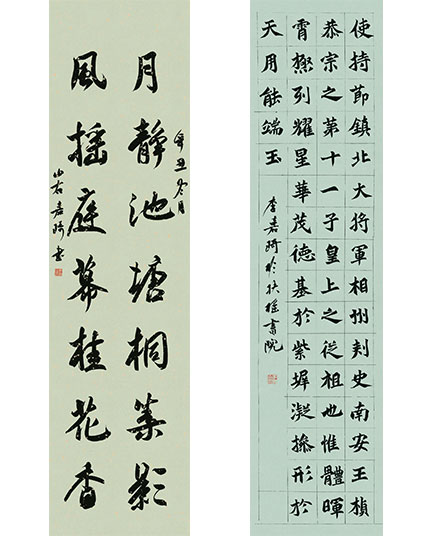 月靜池塘桐葉影
辛丑冬月
風摇庭幕桂花香
山右嘉琦書
使持節鎮北大將軍相州刾史南安王楨
恭宗之第十一子皇上之從祖也惟體暉
霄極列耀星華茂德基於紫墀凝操形於
天用能端玉
李嘉琦於扶摇書院